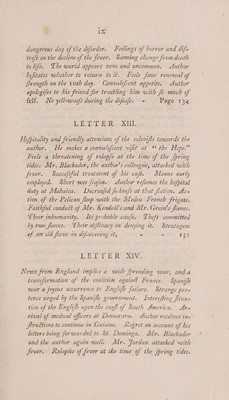 ix
dangerous day of the diſorder. Feelings of horror and diſ-
treſs in the decline of the fever. Seeming change from death
to life. The world appears new and uncommon. Author
heſitates whether to return to it. Feels ſome renewal of
ſtrength on the 10th day. Convaleſcent appetite. Author
apologiſes to his friend for troubling him with ſo much of
ſelf. No yellowneſs during the diſeaſe. - Page 134
LETTER XIII.
Hoſpitality and friendly attentions of the coloniſts towards the
author. He makes a convaleſcent viſit at “ the Hope.”
Feels a threatening of relapſe at the time of the ſpring
tides. Mr. Blackader, the author's colleague, attacked with
fever. Succeſsful treatment of his caſe. Means early
employed. Short wet ſeaſon. Author reſumes the hoſpital
duty at Mahaica. Decreaſed ſickneſs at that ſtation. Ac-
tion of the Pelican ſloop with the Medea French frigate.
Faithful conduct of Mr. Kendall's and Mr. Green's ſlaves.
Their inhumanity. Its probable cauſe. Theft committed
by two ſlaves. Their obſtinacy in denying it. Stratagem
of an old ſlave in diſcovering it. - - 151
LETTER XIV.
News from England implies a wide ſpreading war, and a
transformation of the coalition againſt France. Spaniſh
war a joyous occurrence to Engliſh failure. Strange pre-
tence urged by the Spaniſh government. Intereſting ſitua-
tion of the Engliſh upon the coaſt of South America. Ar-
rival of medical officers at Demerara. Author receives in-
ſtructions to continue in Guiana. Regret on account of his
letters being forwarded to St. Domingo. Mr. Blackader
and the author again well. Mr. Jordan attacked with
fever. Relapſes of fever at the time of the ſpring tides.